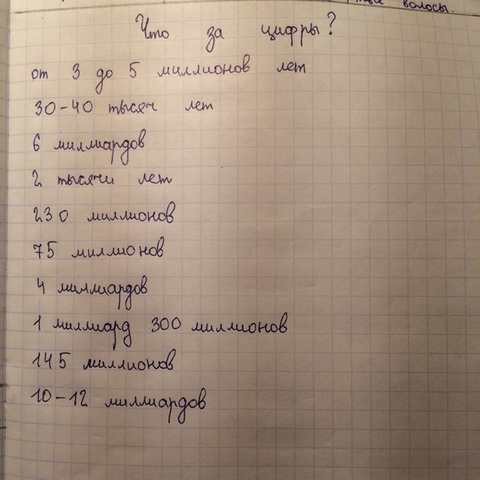 волосы.
Что за цифры?
от 3 до 5 миллионов лет
30-40 тысяч лет
6 миллиардов
2 тысячи лет
230 миллионов
75 миллионов
4 миллиардов
1 миллиард 300 миллионов
145 миллионов
10-12 миллиардов